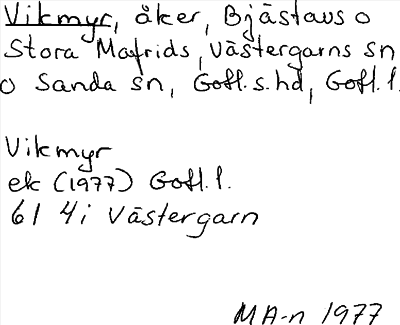 Vikmyr, åker, Bjästavs o
Stora Mafrids, Västergarns sn
o Sanda sn, Gotl. s. hd, Gotl. l.
Vikmyr
ek (1977) Gotl. l.
6I 4i Västergarn
MA-n 1977